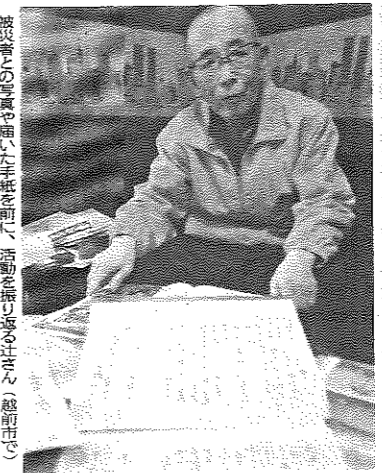 被災者との写真や届いた手紙を前に、活動を振り返る辻さん（越前市で）